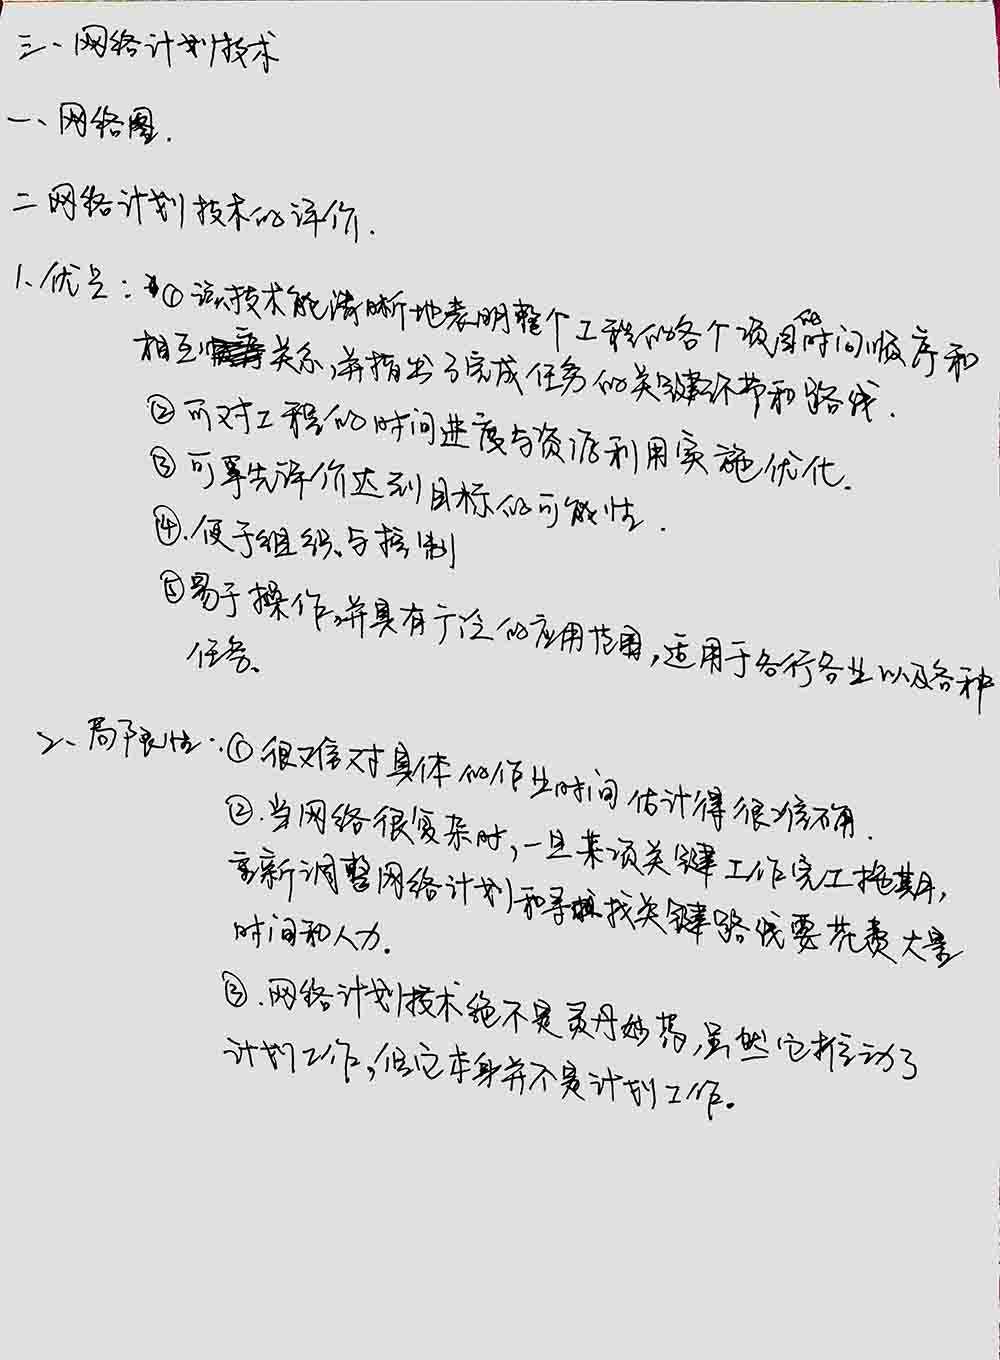 三、网络计划技术
一、网络图.
二网络计划技术的评价.
1、优点：①该技术能清晰地表明整个工程的各个项目的时间顺序和
相互关系,并指出了完成任务的关键环节和路线.
②可对工程的时间进度与资源利用实施优化.
③可事先评价达到目标的可能性.
④.便于组织与控制
⑤易于操作,并具有广泛的应用范围,适用于各行各业以及各种
任务。
2、局限性:①很难对具体的作业时间估计得很准确.
②.当网络很复杂时,一旦某项关键工作完工拖期,
重新调整网络计划和寻找关键路线要花费大量
时间和人力.
③.网络计划技术绝不是灵丹妙药,虽然它推动了
计划工作,但它本身并不是计划工作。